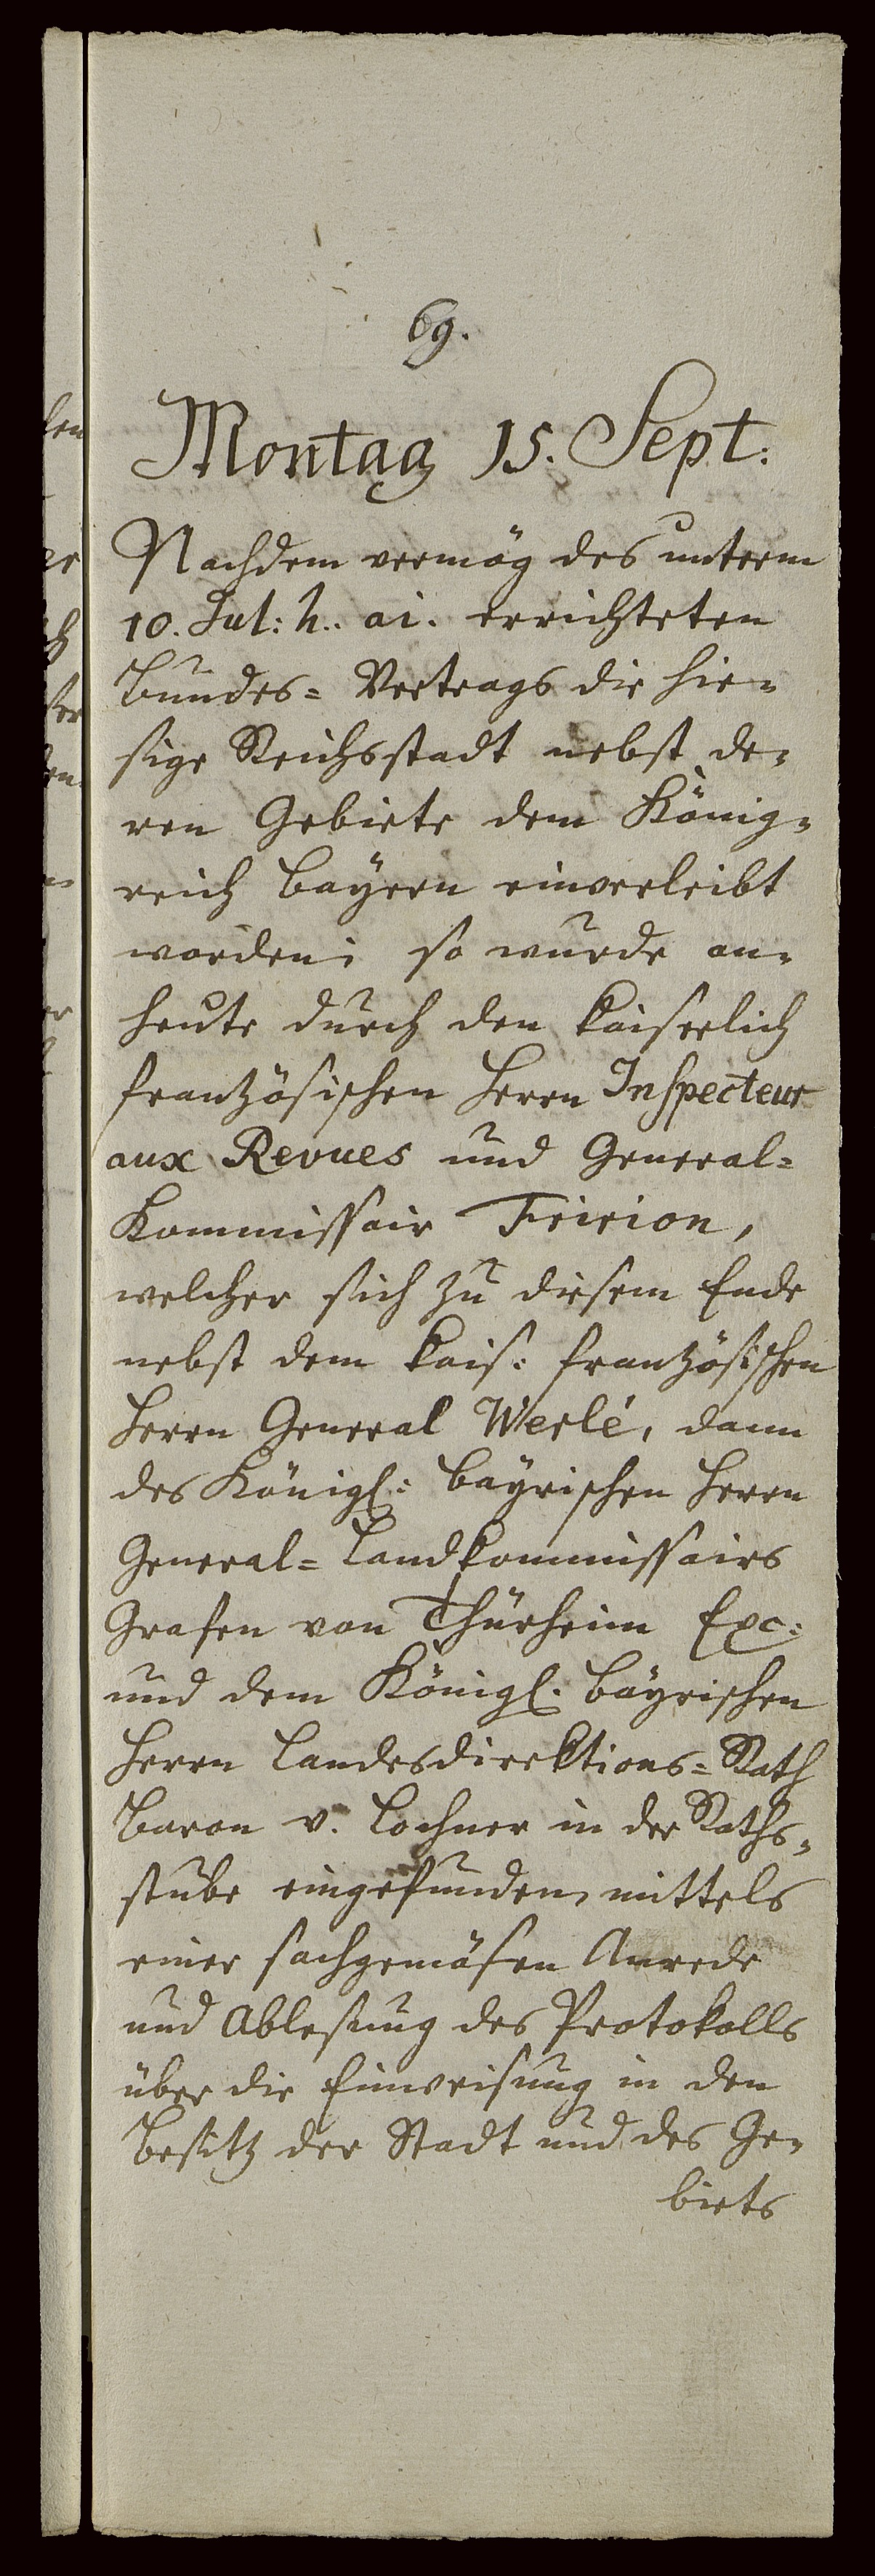 69.
Montag 15. Sept:
Nachdem vermög des unterm
10. Jul: h.. ai. errichteten
Bundes= Vertrags die hie=
sige Reichsstadt nebst de=
ren Gebiete dem König=
reich Bayern einverleibt
worden; so wurde an=
heute durch den kaiserlich
französischen Herrn Inspecteur
aux Revues und General=
Kommissair Fririon,
welcher sich zu diesem Ende
nebst dem kais: französischen
Herrn General Werlé, dann
des Königl: bayrischen Herrn
General= Landkommissairs
Grafen von Thürheim Exc:
und dem Königl. bayrischen
Herrn Landesdirektions= Rath
Baron v. Lochner in der Raths=
stube eingefunden, mittels
einer sachgemäsen Anrede
und Ablesung des Protokolls
über die Einweisung in den
Besitz der Stadt und des Ge=
biets